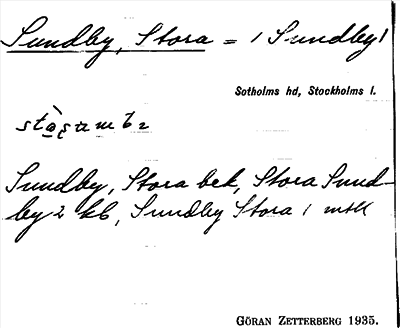 Sundby, Stora = / Sundby /
Sotholms hd, Stockholms l.
Sundby, Stora bek, Stora Sund-
by 2 kb, Sundby Stora / mtk
GÖRAN ZETTERBERG 1935.